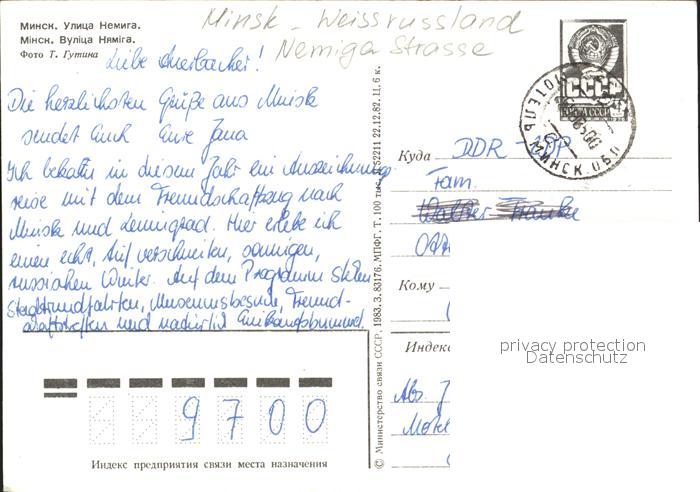 Minsk - Weissrussland
Nemiga Strasse
Минск. Улица Немига.
Мінск. Вуліца Няміга.
Фото Т. Гутина
Liebe Auerbacher!
Die herzlichsten Grüße aus Minsk
sendet Euch Eure Jana
Ich bekam in diesem Jahr ein Auszeichnungs-
reise mit dem Freundschaftszug nach
Minsk und Leningrad. Hier erlebe ich
einen echt, tief verschneiten, sonnigen,
russischen Winter. Auf dem Programm stehen
Stadtrundfahrten, Museumsbesuche, Freund-
schaftstreffen und natürlich Einkaufsbummel.
9700
Индекс предприятия связи места назначения
© Министерство связи СССР, 1983. З. 83176. МПФГ. Т. 100 тыс. 22.12.82. 11. 6 к.
СССР
МИНСК. ОБЛ
Куда DDR - 
Fam.
Кому
Индекс
Abs. J
privacy protection
Datenschutz